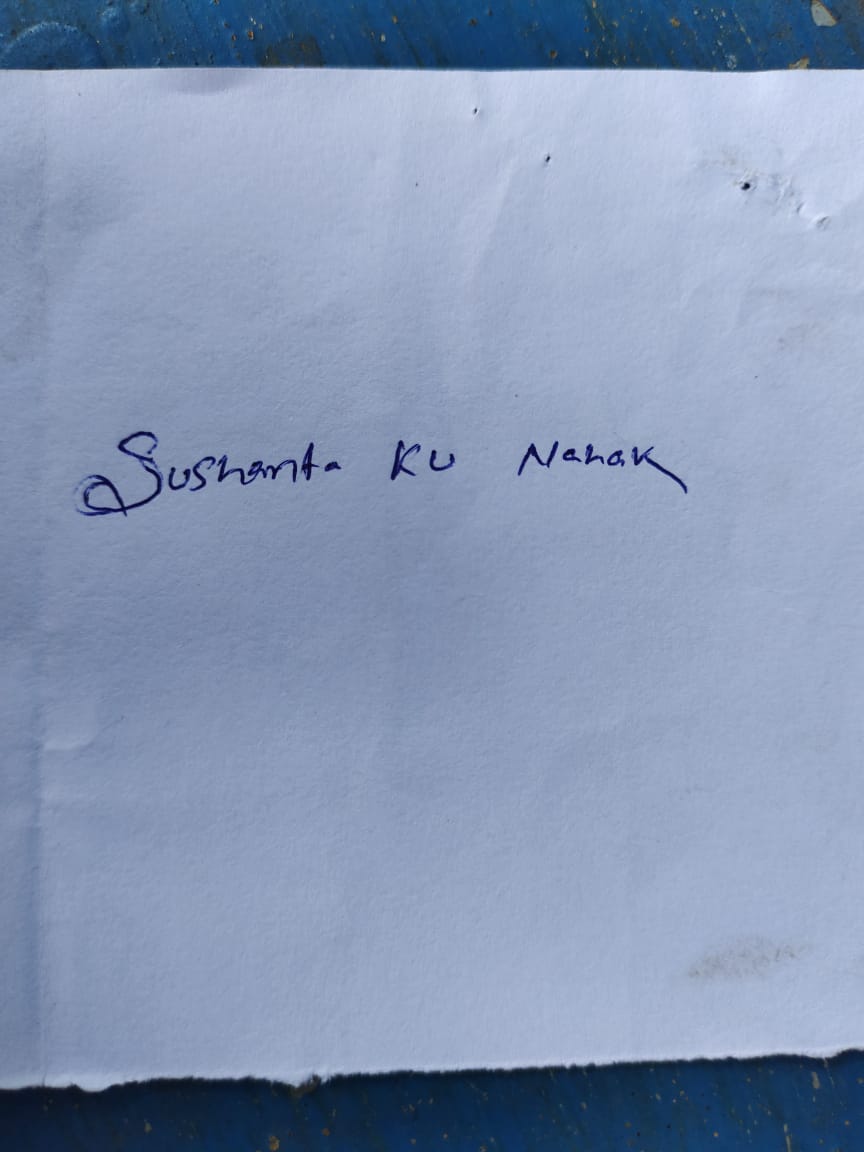 Sushanta Ku Nahak